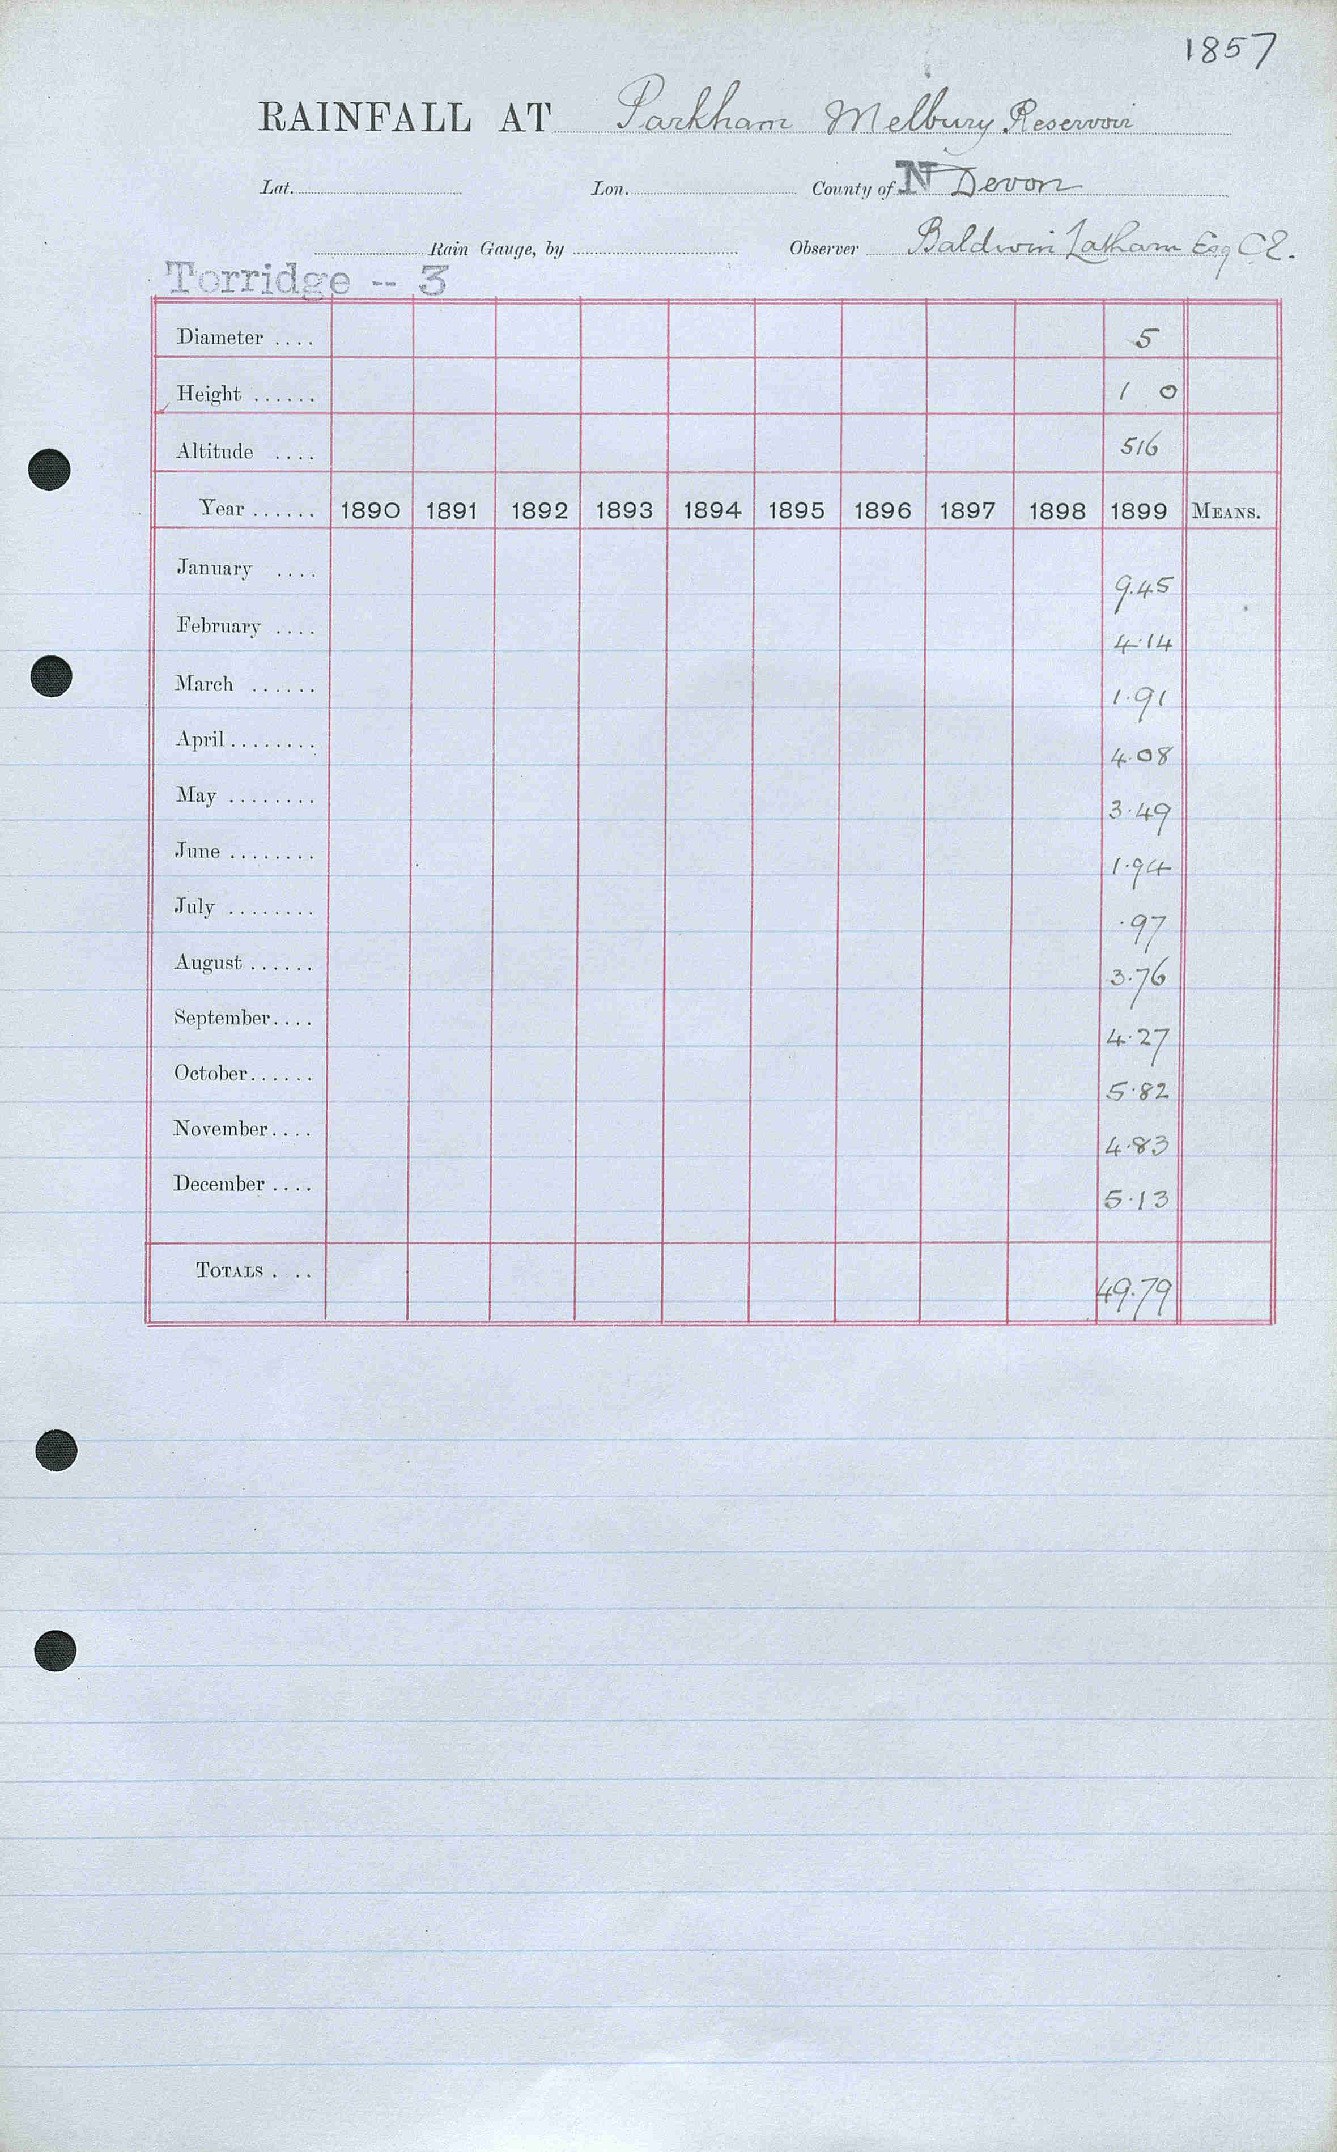 1857
RAINFALL AT Parkham Melbury Reservoir
Lat. Lon. County of N Devon
Rain Gauge, by Observer Baldwin Latham Esq C.E.
Torridge -- 3
Diameter .... 5
Height ...... 1 0
Altitude .... 516
Year ...... 1890 1891 1892 1893 1894 1895 1896 1897 1898 1899 MEANS.
January .... 9.45
February .... 4.14
March ...... 1.91
April ........ 4.08
May ........ 3.49
June ........ 1.94
July ........ .97
August ...... 3.76
September.... 4.27
October...... 5.82
November.... 4.83
December .... 5.13
TOTALS . .. 49.79